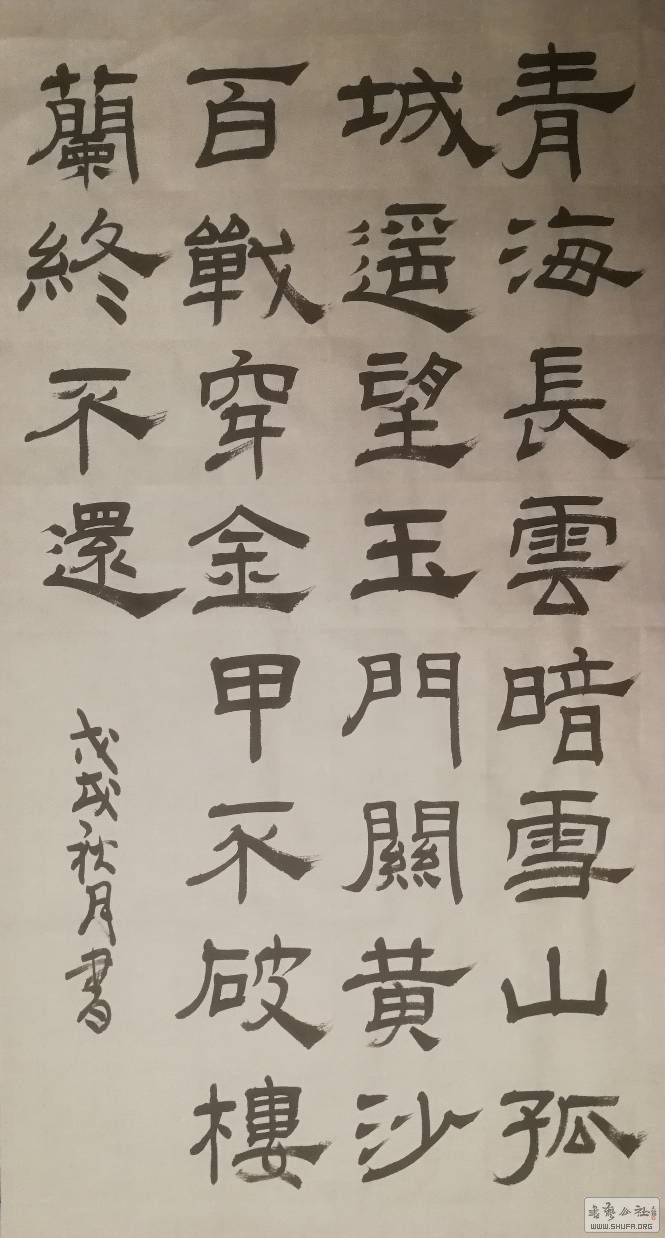 青海長雲暗雪山孤
城遥望玉門關黄沙
百戰穿金甲不破樓
蘭終不還
戊戌秋月書
书艺公社
WWW.SHUFA.ORG